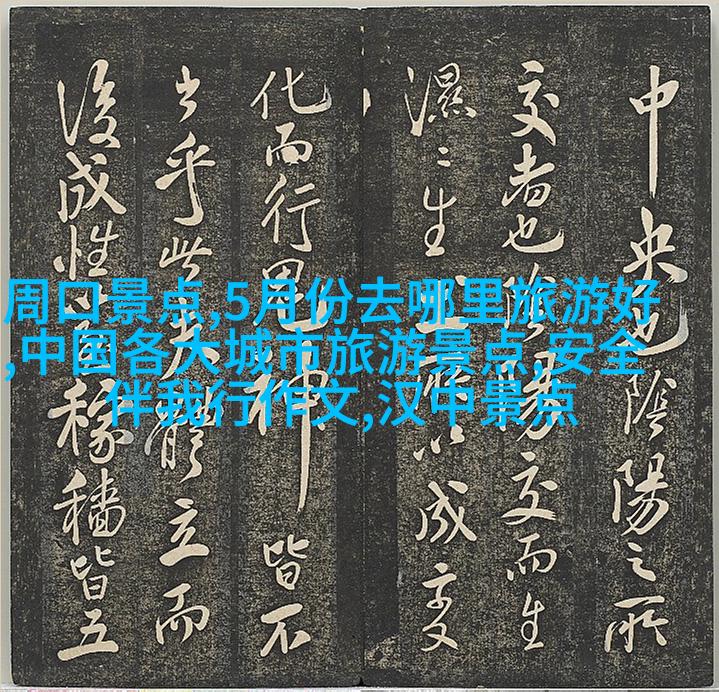 周口景点,5月份去哪里旅游好
,中国各大城市旅游景点,安全
伴我行作文,汉中景点
中央也陰陽之所
交者也陰陽交而生
濕〻生土所以成變
化而行鬼神皆不
出乎此其體立而
後成性稼穡皆五